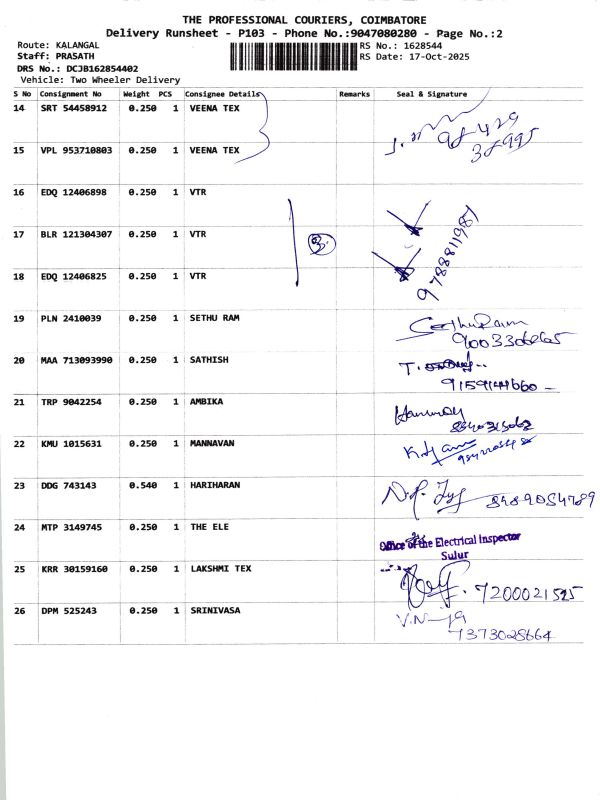 THE PROFESSIONAL COURIERS, COIMBATORE
Delivery Runsheet - P103 - Phone No.:9047080280 - Page No.:2
Route: KALANGAL
RS No.: 1628544
Staff: PRASATH
RS Date: 17-Oct-2025
DRS No.: DCJB162854402
Vehicle: Two Wheeler Delivery
S No Consignment No Weight PCS Consignee Details Remarks Seal & Signature
14 SRT 54458912 0.250 1 VEENA TEX
98429
38995
15 VPL 953710803 0.250 1 VEENA TEX
16 EDQ 12406898 0.250 1 VTR
17 BLR 121304307 0.250 1 VTR
3
9788811987
18 EDQ 12406825 0.250 1 VTR
19 PLN 2410039 0.250 1 SETHU RAM SethuRam
20 MAA 713093990 0.250 1 SATHISH
21 TRP 9042254 0.250 1 AMBIKA
22 KMU 1015631 0.250 1 MANNAVAN
23 DDG 743143 0.540 1 HARIHARAN 8489054789
24 MTP 3149745 0.250 1 THE ELE
Office of the Electrical Inspector
Sulur
25 KRR 30159160 0.250 1 LAKSHMI TEX
26 DPM 525243 0.250 1 SRINIVASA
7373028664